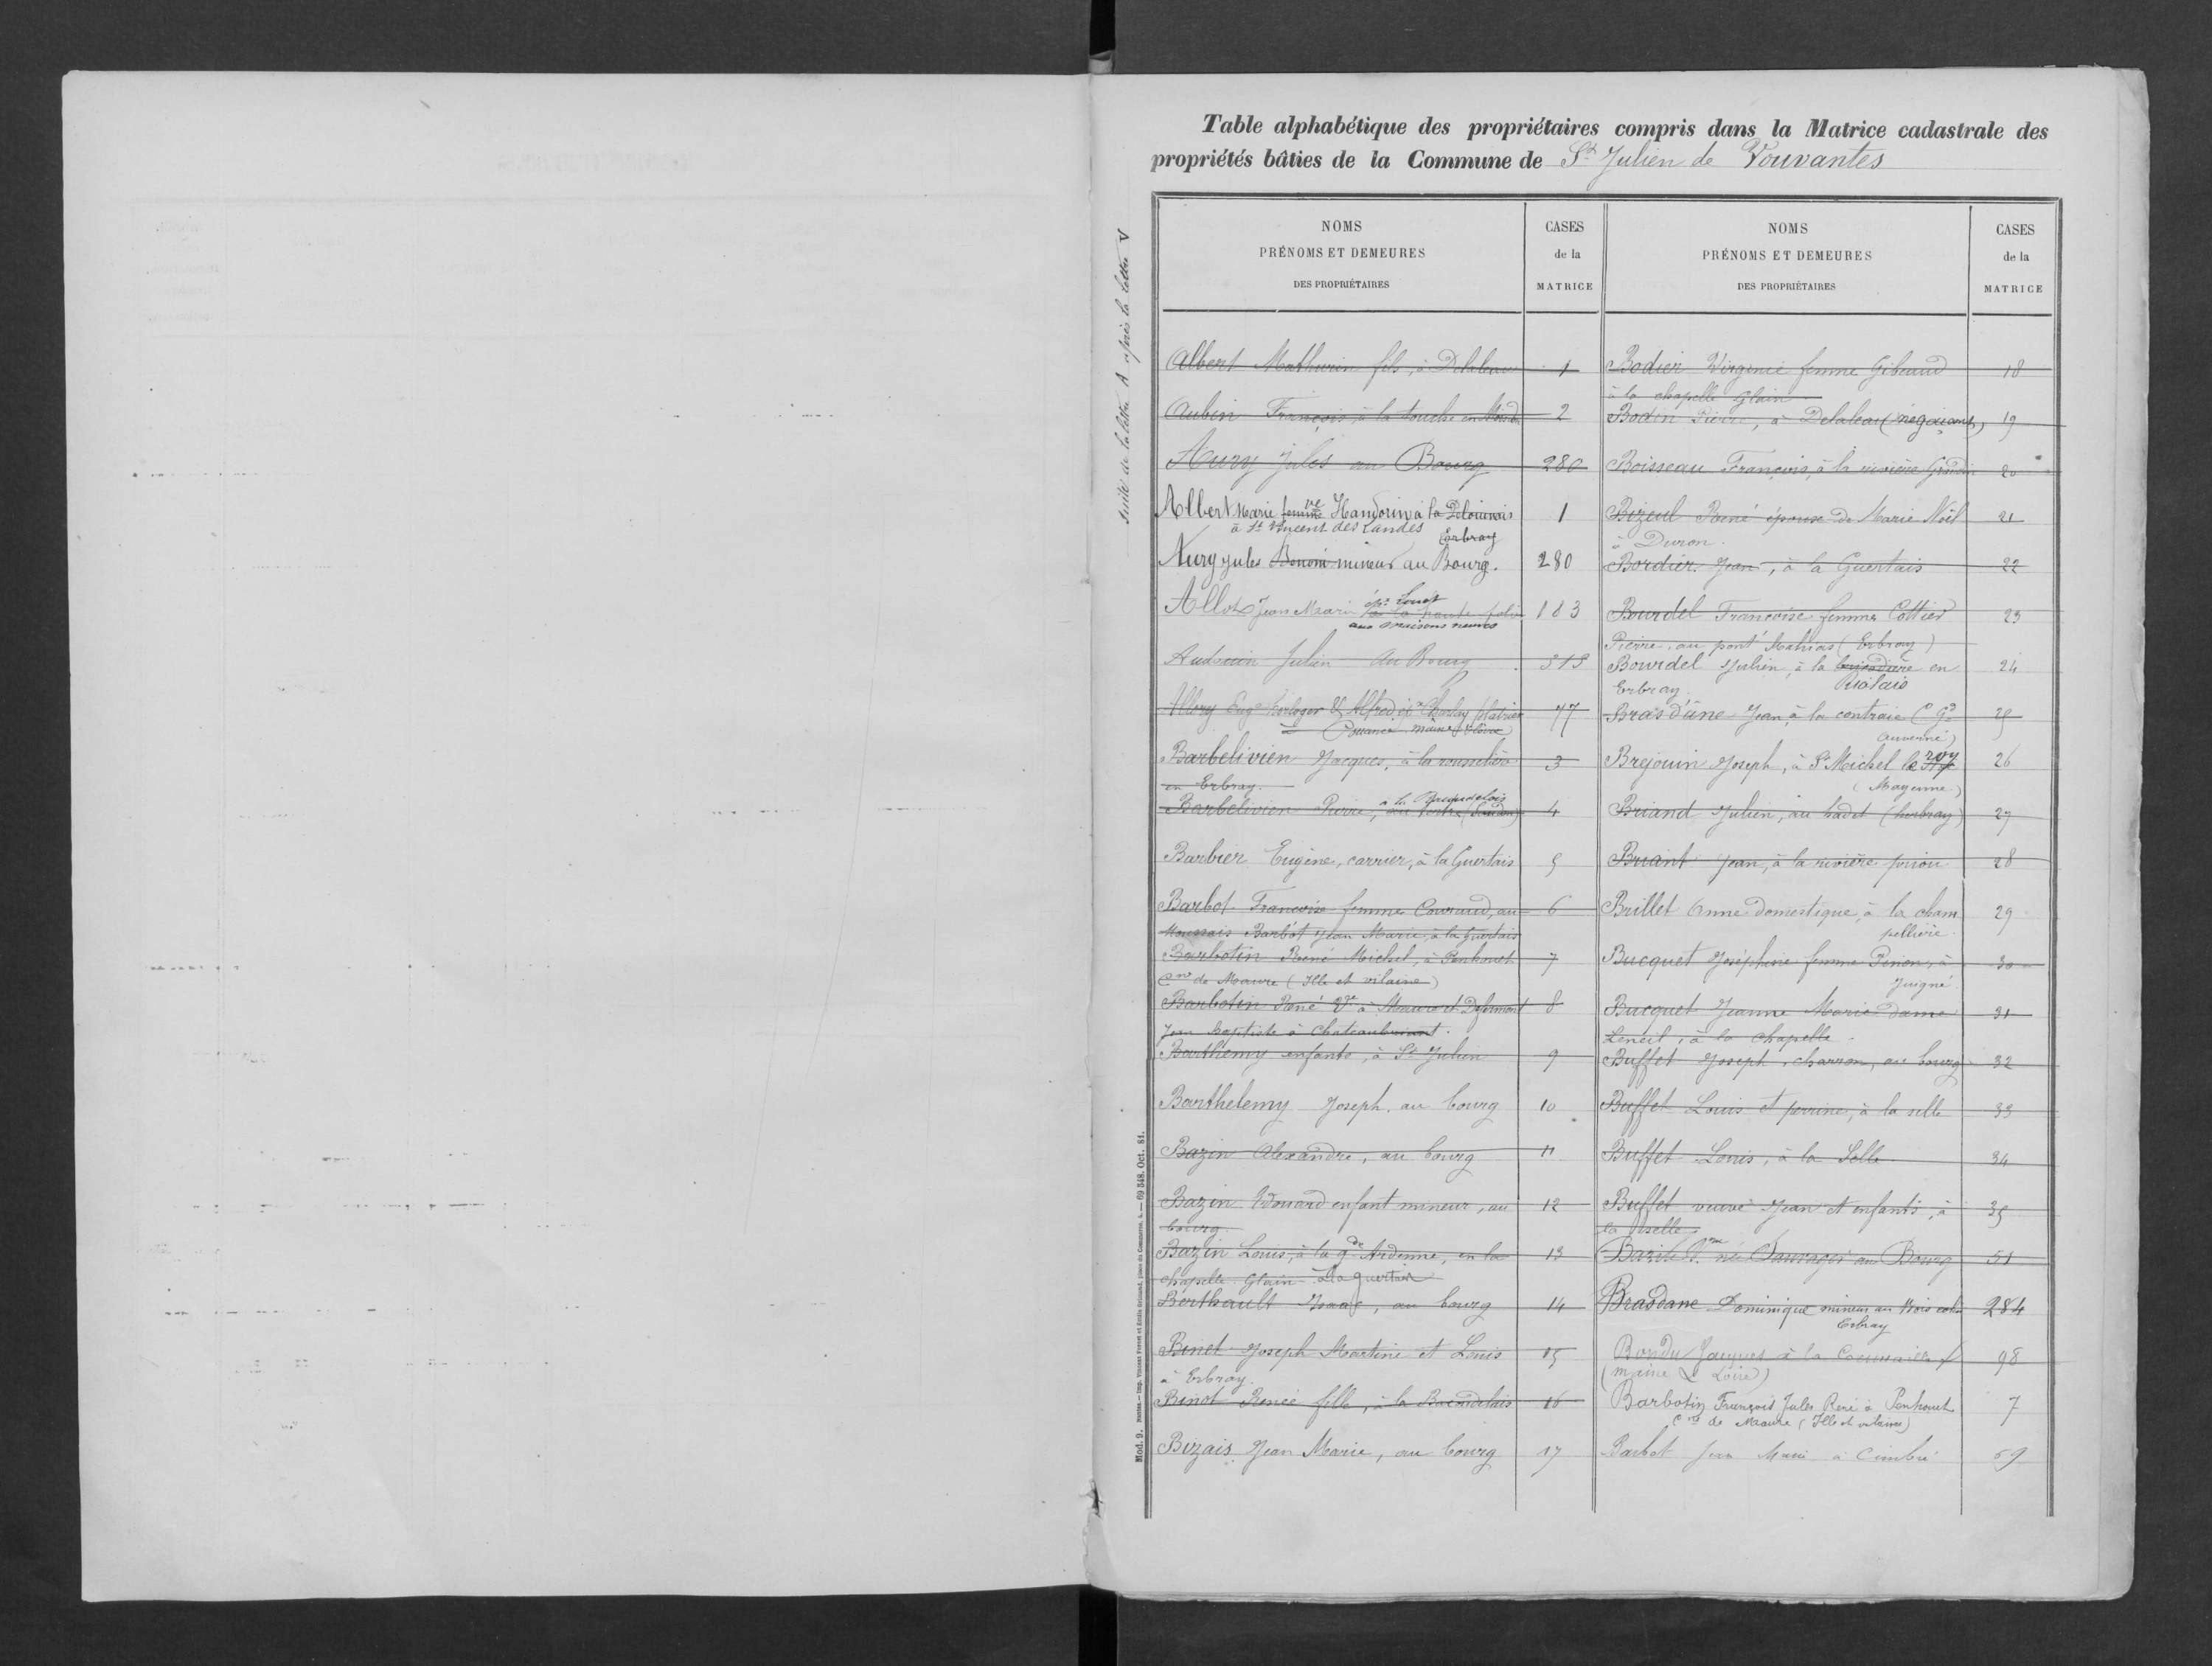 Table alphabétique des propriétaires compris dans la Matrice cadastrale des
propriétés bâties de la Commune de St Julien de Vouvantes
suite de la lettre A après la lettre V
NOMS
PRÉNOMS ET DEMEURES
DES PROPRIÉTAIRES
CASES
de la
MATRICE
Albert Mathurin fils, à Delaleau 1
Aubin François, à la touche en 2
Aury Jules au Bourg 280
Albert Marie femme ve Handorin à la 1
à St Vincent des Landes Erbray
Aury Jules Benoni mineur au Bourg. 280
Allot Jean Marie à la haute folie 183
aux maisons neuves
Audouin Julien Au Bourg 313
Albry Eugne horloger & Alfred 77
à Pouancé maine & Loire
Barbelivien Jacques, à la rousselière 3
en Erbray.
Barbelivien Pierre, 4
Barbier Eugène, carrier, à la Guertais 5
Barbot Françoise femme Couraud, au 6
Moussais Barbot Jean Marie, à la Guertais
Barbotin René Michel, à Penhouet 7
Cne de Maure (Ille et vilaine)
Barbotin René Ve à Maure et Defermont 8
Jean Baptiste à Chateaubriant.
Barthemy enfants, à St Julien 9
Barthelemy Joseph, au bourg 10
Bazin Alexandre, au bourg 11
Bazin Edouard enfant mineur, au 12
bourg.
Bazin Louis, à la gde Ardenne, en la 13
chapelle Glain à la guertais
Berthault Isaac, au bourg 14
Binet Joseph Martin et Louis 15
à Erbray.
Binet Renée fille, à la Bacaudelais 16
Bizais Jean Marie, au bourg 17
NOMS
PRÉNOMS ET DEMEURES
DES PROPRIÉTAIRES
CASES
de la
MATRICE
Bodier Virginie femme Gibeaud 18
à la chapelle Glain
Bodin Pierre, à Delaleau (négociant) 19
Boisseau François, à la rivière 20
Bizeul René époux de Marie Noël 21
à Duron.
Bordier Jean, à la Guertais 22
Bourdel Françoise femme Cottier 23
Pierre, au pont Mahias (Erbray)
Bourdel Julien, à la en 24
Erbray. Riolais
Bras d'âne Jean, à la contraie (Gd 25
Auverné)
Brejouin Joseph, à St Michel le roy 26
(Mayenne)
Briand Julien, au hadet (herbray) 27
Briant Jean, à la rivière poriou 28
Brillet Anne domestique, à la cham 29
pellière.
Bucquet Joséphine femme Perion, à 30
Juigné.
Bucquet Jeanne Marie dame 31
Leneil, à la chapelle.
Buffet Joseph, charron, au bourg 32
Buffet Louis et perrine, à la selle 33
Buffet Louis, à la Selle 34
Buffet veuve Jean et enfants, à 35
la Selle
au Bourg 51
Brasdane Dominique mineur au Bois 284
Erbray
Bondu Jacques à la 98
(maine & Loire)
Barbotin François Jules René à Penhouet 7
Cne de Maure (Ille et vilaine)
Barbot Jean Marie à Cimbré 69
Mod. 9. Nantes. — Imp. Vincent Forest et Émile Grimaud, place du Commerce, 4. — 69 548. Oct. 81.